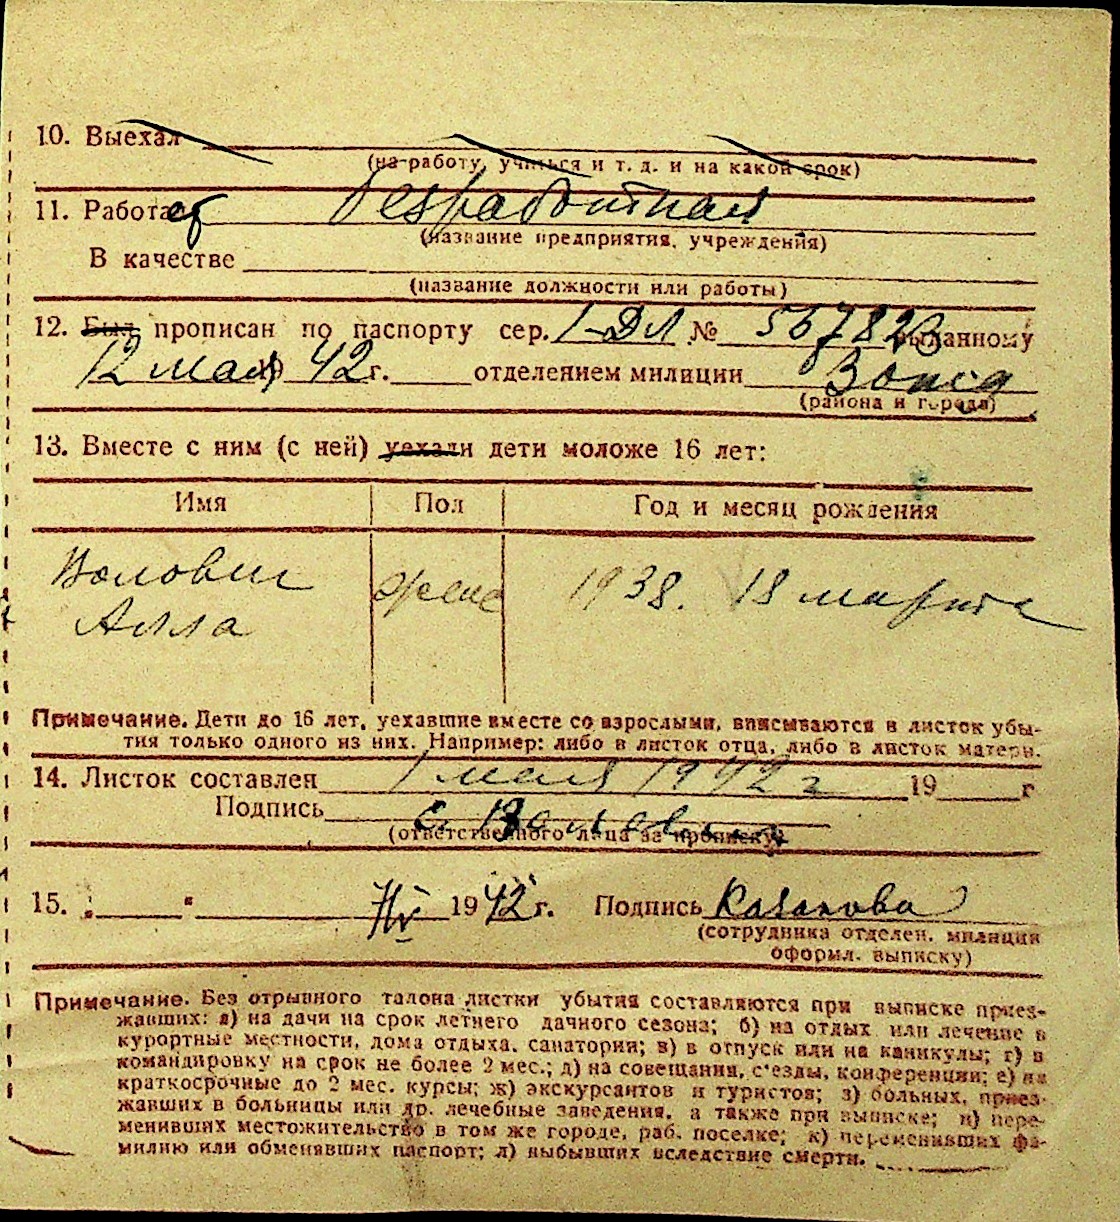 10. Выехал
(на работу, учиться и т. д. и на какой срок)
11. Работает безработная
(название предприятия, учреждения)
В качестве
(название должности или работы)
12. Был прописан по паспорту сер. 1-ДЛ № 567823 выданному
12 мая 42 г. отделением милиции
(района и города)
13. Вместе с ним (с ней) уехали дети моложе 16 лет:
Имя Пол Год и месяц рождения
Воловик жен 1938. 18 марта
Алла
Примечание. Дети до 16 лет, уехавшие вместе со взрослыми, вписываются в листок убы-
тия только одного из них. Например: либо в листок отца, либо в листок матери.
14. Листок составлен 1 мая 1942 г 19 г
Подпись
(ответственного лица за прописку)
15. " " 1942 г. Подпись Казакова
(сотрудника отделен. милиции
оформл. выписку)
Примечание. Без отрывного талона листки убытия составляются при выписке приез-
жавших: а) на дачи на срок летнего дачного сезона; б) на отдых или лечение в
курортные местности, дома отдыха, санатории; в) в отпуск или на каникулы; г) в
командировку на срок не более 2 мес.; д) на совещания, с'езды, конференции; е) на
краткосрочные до 2 мес. курсы; ж) экскурсантов и туристов; з) больных, приез-
жавших в больницы или др. лечебные заведения, а также при выписке; и) пере-
менивших местожительство в том же городе, раб. поселке; к) переменивших фа-
милию или обменявших паспорт; л) выбывших вследствие смерти.